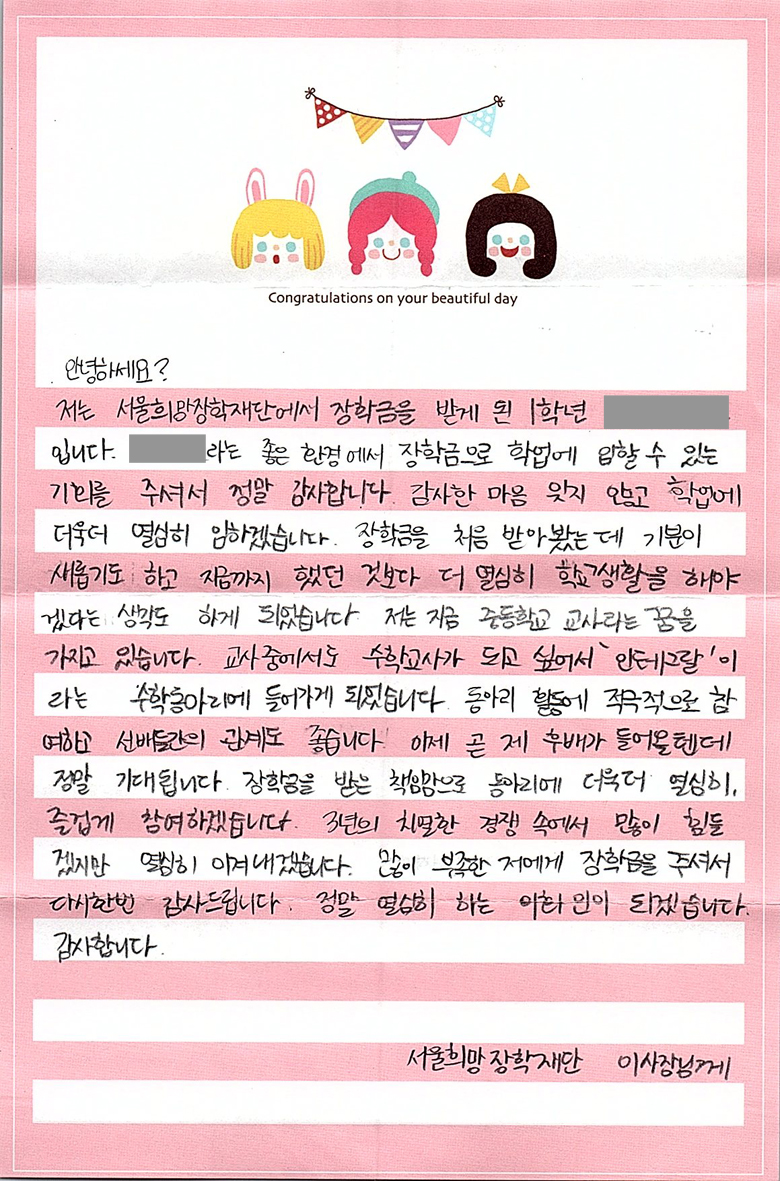 Congratulations on your beautiful day
안녕하세요?
저는 서울희망장학재단에서 장학금을 받게 된 1학년
입니다. 라는 좋은 환경에서 장학금으로 학업에 임할 수 있는
기회를 주셔서 정말 감사합니다. 감사한 마음 잊지 않고 학업에
더욱더 열심히 임하겠습니다. 장학금을 처음 받아봤는데 기분이
새롭기도 하고 지금까지 했던 것보다 더 열심히 학교생활을 해야
겠다는 생각도 하게 되었습니다. 저는 지금 중등학교 교사라는 꿈을
가지고 있습니다. 교사중에서도 수학교사가 되고 싶어서 '인테그랄'이
라는 수학동아리에 들어가게 되었습니다. 동아리 활동에 적극적으로 참
여하고 선배들간의 관계도 좋습니다. 이제 곧 제 후배가 들어올텐데
정말 기대됩니다. 장학금을 받은 책임감으로 동아리에 더욱더 열심히,
즐겁게 참여하겠습니다. 3년의 치열한 경쟁 속에서 많이 힘들
겠지만 열심히 이겨내겠습니다. 많이 부족한 저에게 장학금을 주셔서
다시한번 감사드립니다. 정말 열심히 하는 되겠습니다.
감사합니다.
서울희망장학재단 이사장님께